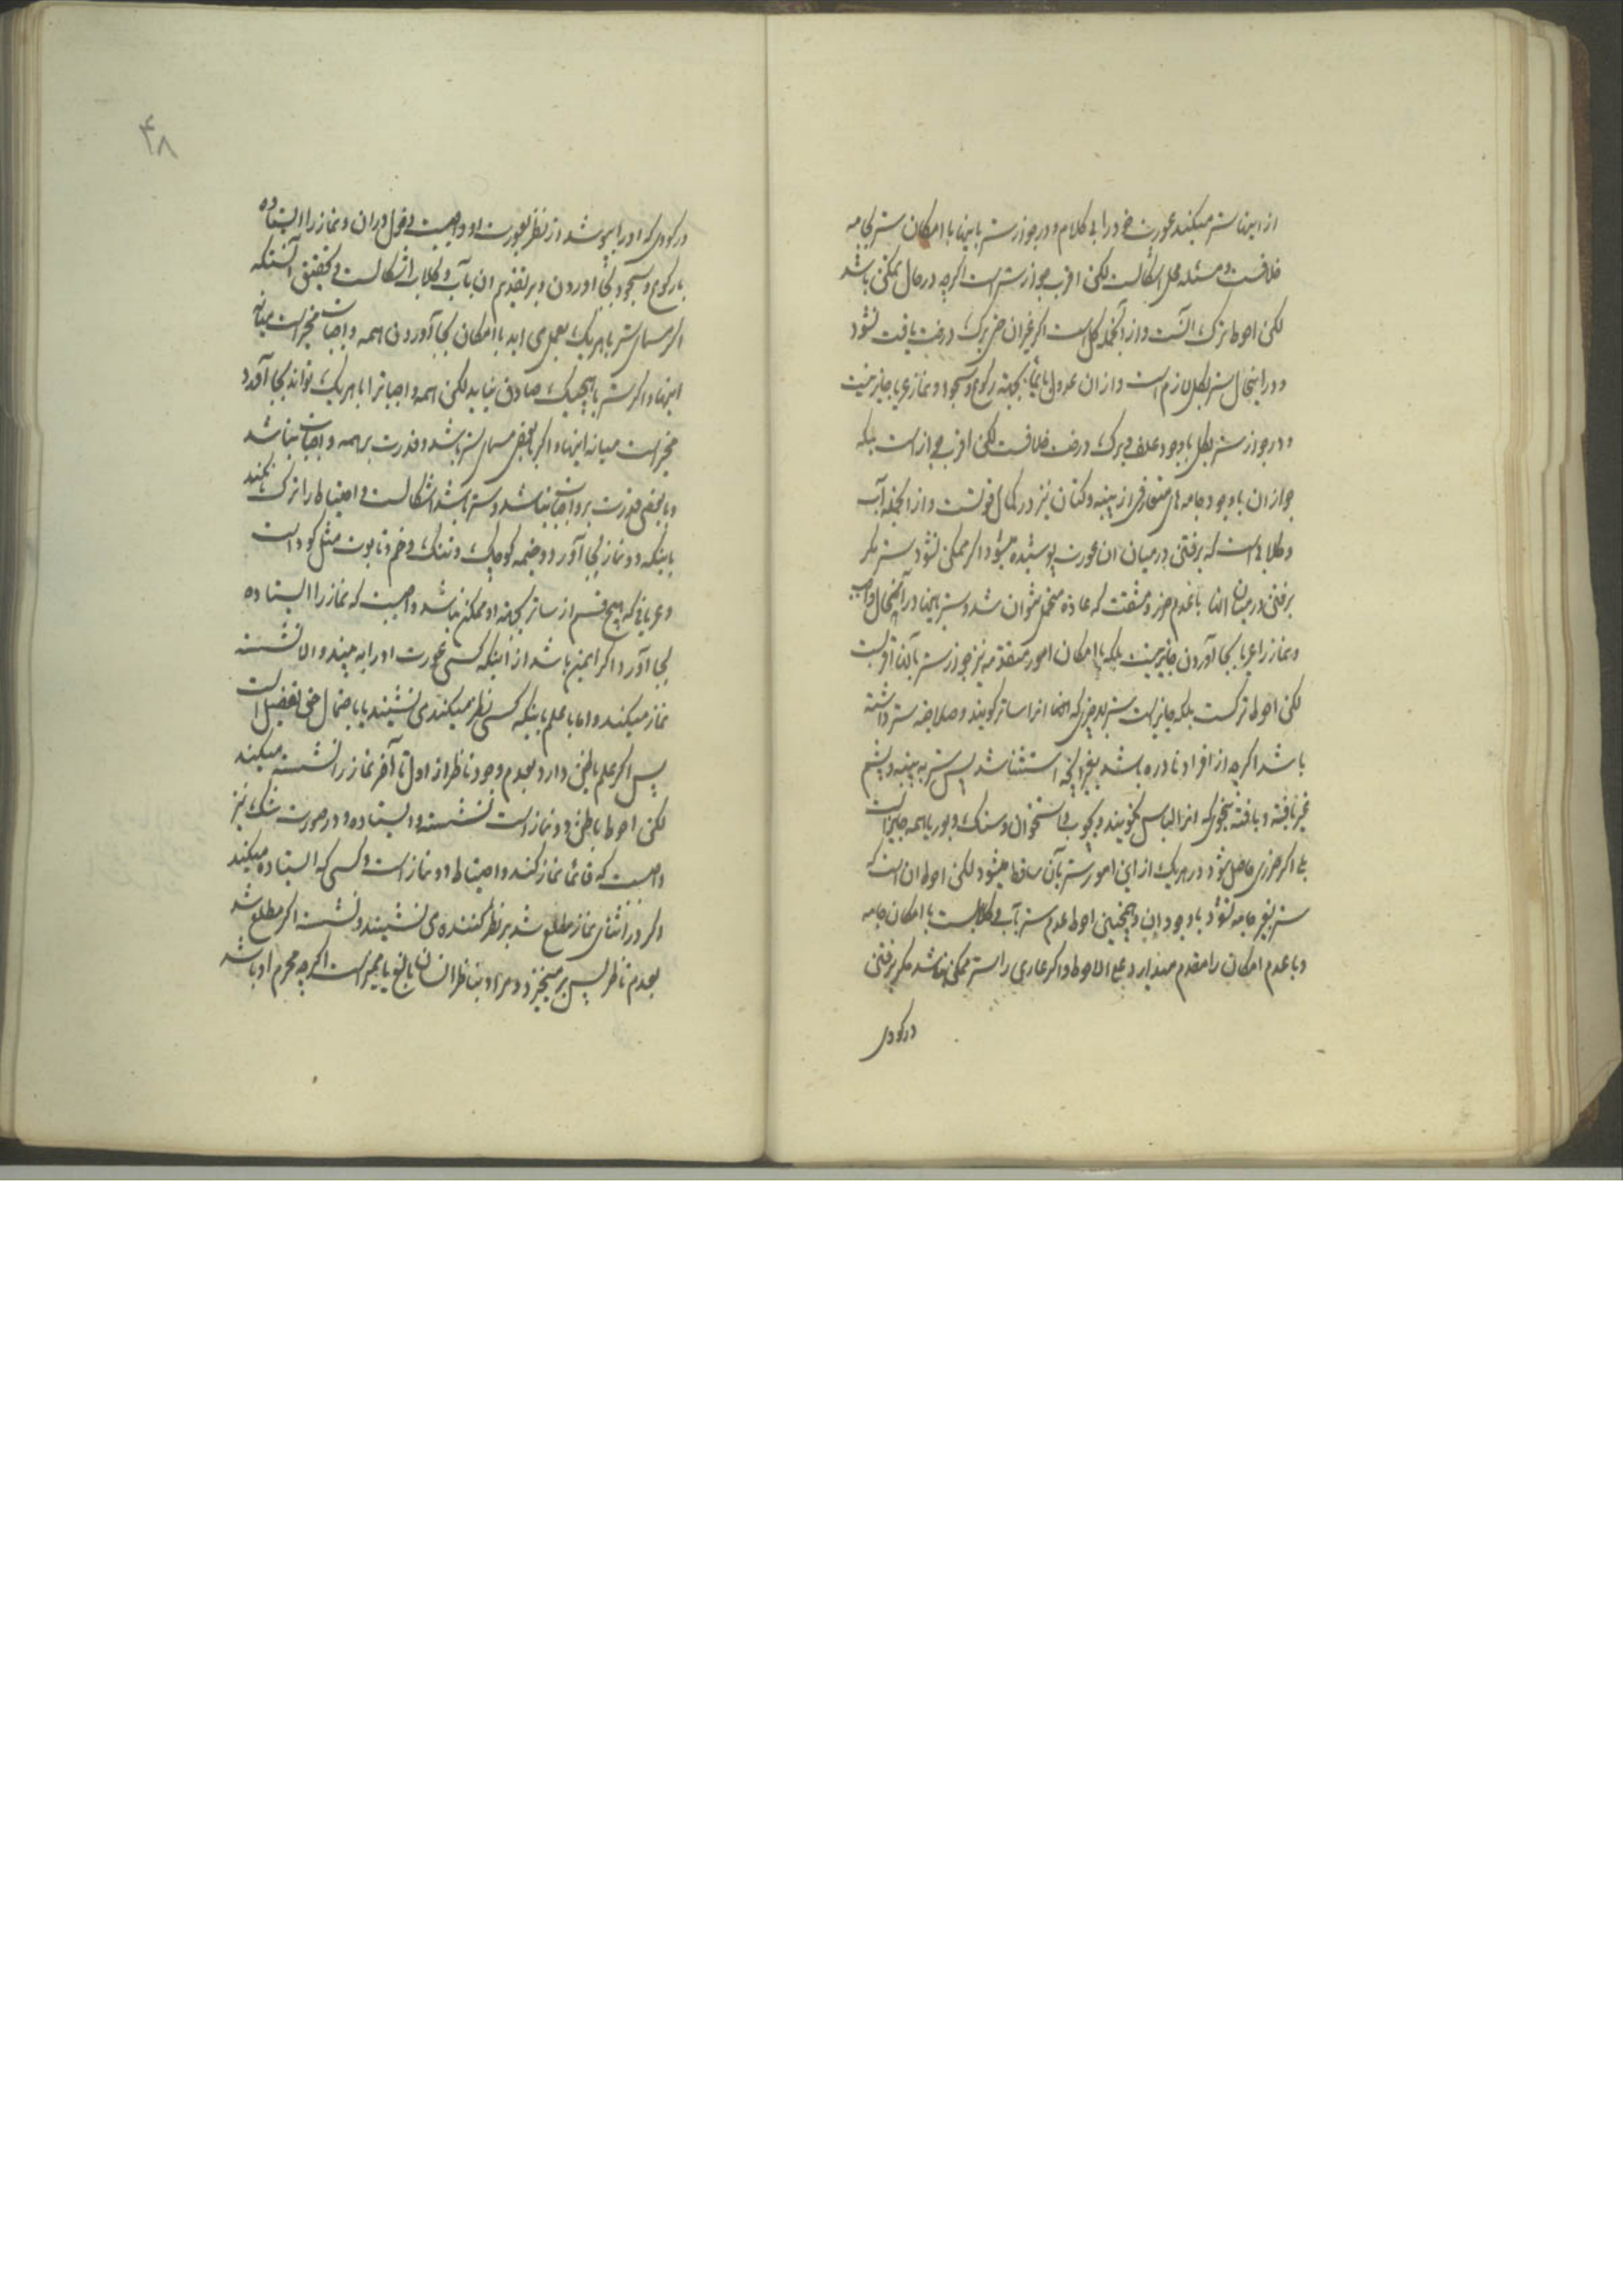 از اینها ستر میکند عورت خود را بی کلام و در جواز ستر باینها با امکان ستر بجامه
خلافست و مسئله محل اشکالست لکن اقرب جواز ستر است اگرچه در حال ممکن باشد
لکن احوط ترک آنست و از آنجمله کل است اگر غیر ان حتی برک درخت یافت نشود
و در اینحال ستر بکل لازم است و از ان عدول بایماء بجهة رکوع و سجود و نماز عریا جایز نیست
و در جواز ستر بکل با وجود علف و برک درخت خلافست لکن اقرب جواز است بلکه
جواز ان با وجود جامه های متعارفی از پنبه و کتان نیز در کمال قوتست و از انجمله آب
و کلابی است که برفتن در میان ان عورت پوشیده میشود اگر ممکن نشود ستر مکر
برفتن در میان انها با عدم ضرر و مشقت که عادة متحمل نتوان شد و ستر باینها در آنحال واجب
و نماز را عریا بجا آوردن جایز نیست بلکه با امکان امور متقدمه نیز جواز ستر بآنها اقویست
لکن احوط ترکست بلکه جایز است ستر بهر چیزی که انها انرا ساتر کویند و صلاحیه ستر داشته
باشد اگرچه از افراد نادره باشد بغیر آنچه استثنا شد پس ستر به پنبه و پشم
غیر بافته و بافته بنحویکه انرا لباس نکویند و بچوب و استخوان و سنک و بوریا همه جایز است
بلی اگر ضرری حاصل شود در هریک از این امور ستر بآن ساقط میشود لکن احوط ان است که
ستر بغیر جامه نشود با وجود ان و همچنین احوط عدم ستر بآب و کلابست با امکان جامه
و با عدم امکان را مقدم میدارد علی الاحوط و اکر عاری را ستر ممکن نباشد مکر برفتن
در کودی
۴۸
در کودی که او را بپوشد از نظر بعورت او واجبست دخول در ان و نماز را ایستاده
با رکوع و سجود بجا اوردن و بر تقدیم ان بآب و کلاب اشکالست و تحقیق آنستکه
اکر مسمای ستر بهریک بعمل می اید با امکان بجا آوردن همه واجبات مخیر است میانه
اینها و اکر ستر بهیچیک صادق نیاید لکن همه واجباترا با هریک تواند بجا آورد
مخیر است میانه اینها و اکر با بعضی مسمای ستر باشد و قدرت بر همه واجبات نباشد
و با بعضی قدرت بر واجبات باشد و ستر نباشد اشکالست و احتیاط را ترک نکند
باینکه دو نماز بجا آورد و خیمه کوچک و تنک و خم و تابوت مثل کود است
و عریانی که هیچ قسم از ساتر بجهة او ممکن نباشد واجبست که نماز را ایستاده
بجا آورد اکر ایمن باشد از اینکه کسی عورت او را به بیند و الا نشسته
نماز میکند و اما با علم باینکه کسی نظر میکند می نشیند یا باحتمال حتی تفصیل است
پس اکر علم یا ظن دارد بعدم وجود ناظر از اول تا آخر نماز را نشسته میکند
لکن احوط با ظن دو نماز است نشسته و ایستاده و در صورت شک نیز
واجبست که قائما نماز کند و احتیاط دو نماز است و کسی که ایستاده میکند
اکر در اثنای نماز مطلع شد بر نظر کننده می نشیند و نشسته اکر مطلع شد
بعدم ناظر پس بر میخیزد و مراد بناظر انسان بالغ یا ممیز است اکرچه محرم او باشد